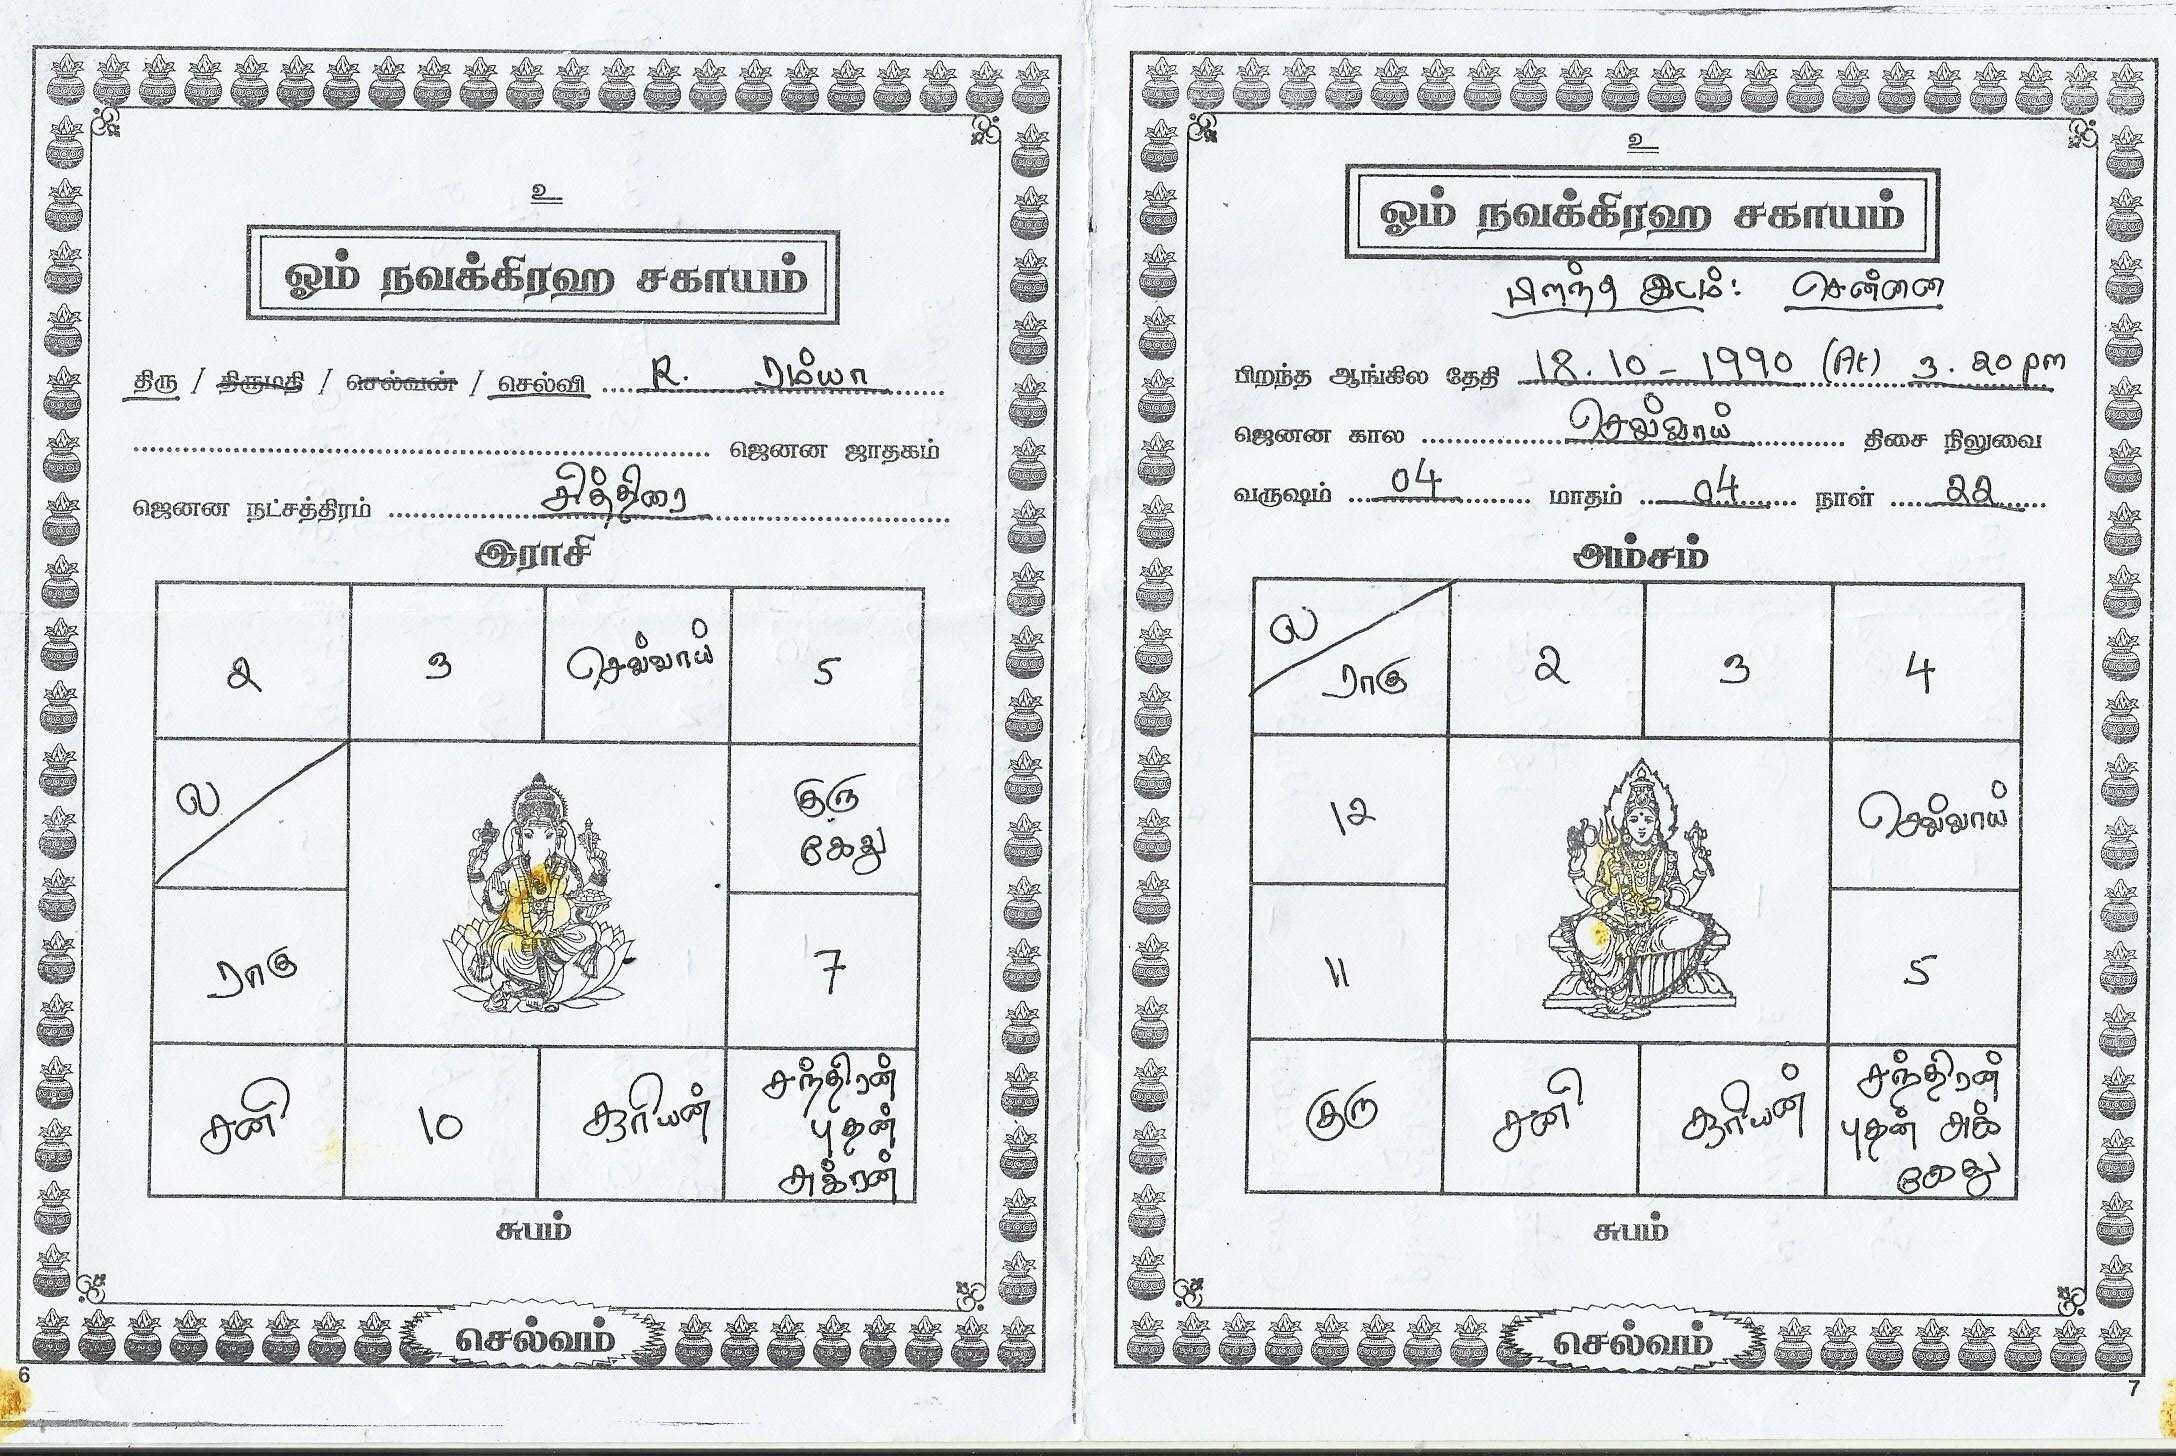 உ
ஓம் நவக்கிரஹ சகாயம்
திரு / திருமதி / செல்வன் / செல்வி R. ரம்யா
ஜெனன ஜாதகம்
ஜெனன நட்சத்திரம் சித்திரை
இராசி
2 3 செவ்வாய் 5
ல குரு
கேது
ராகு 7
சனி 10 சூரியன் சந்திரன்
புதன்
சுக்ரன்
சுபம்
செல்வம்
6
உ
ஓம் நவக்கிரஹ சகாயம்
பிறந்த இடம்: சென்னை
பிறந்த ஆங்கில தேதி 18.10-1990 (At) 3.20pm
ஜெனன கால செவ்வாய் திசை நிலுவை
வருஷம் 04 மாதம் 04 நாள் 22
அம்சம்
ல
ராகு 2 3 4
12 செவ்வாய்
11 5
குரு சனி சூரியன் சந்திரன்
புதன் சுக்
கேது
சுபம்
செல்வம்
7